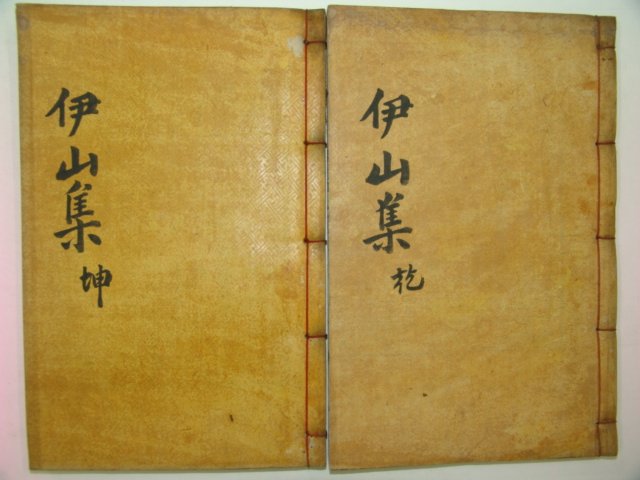 伊山集
乾
伊山集
坤